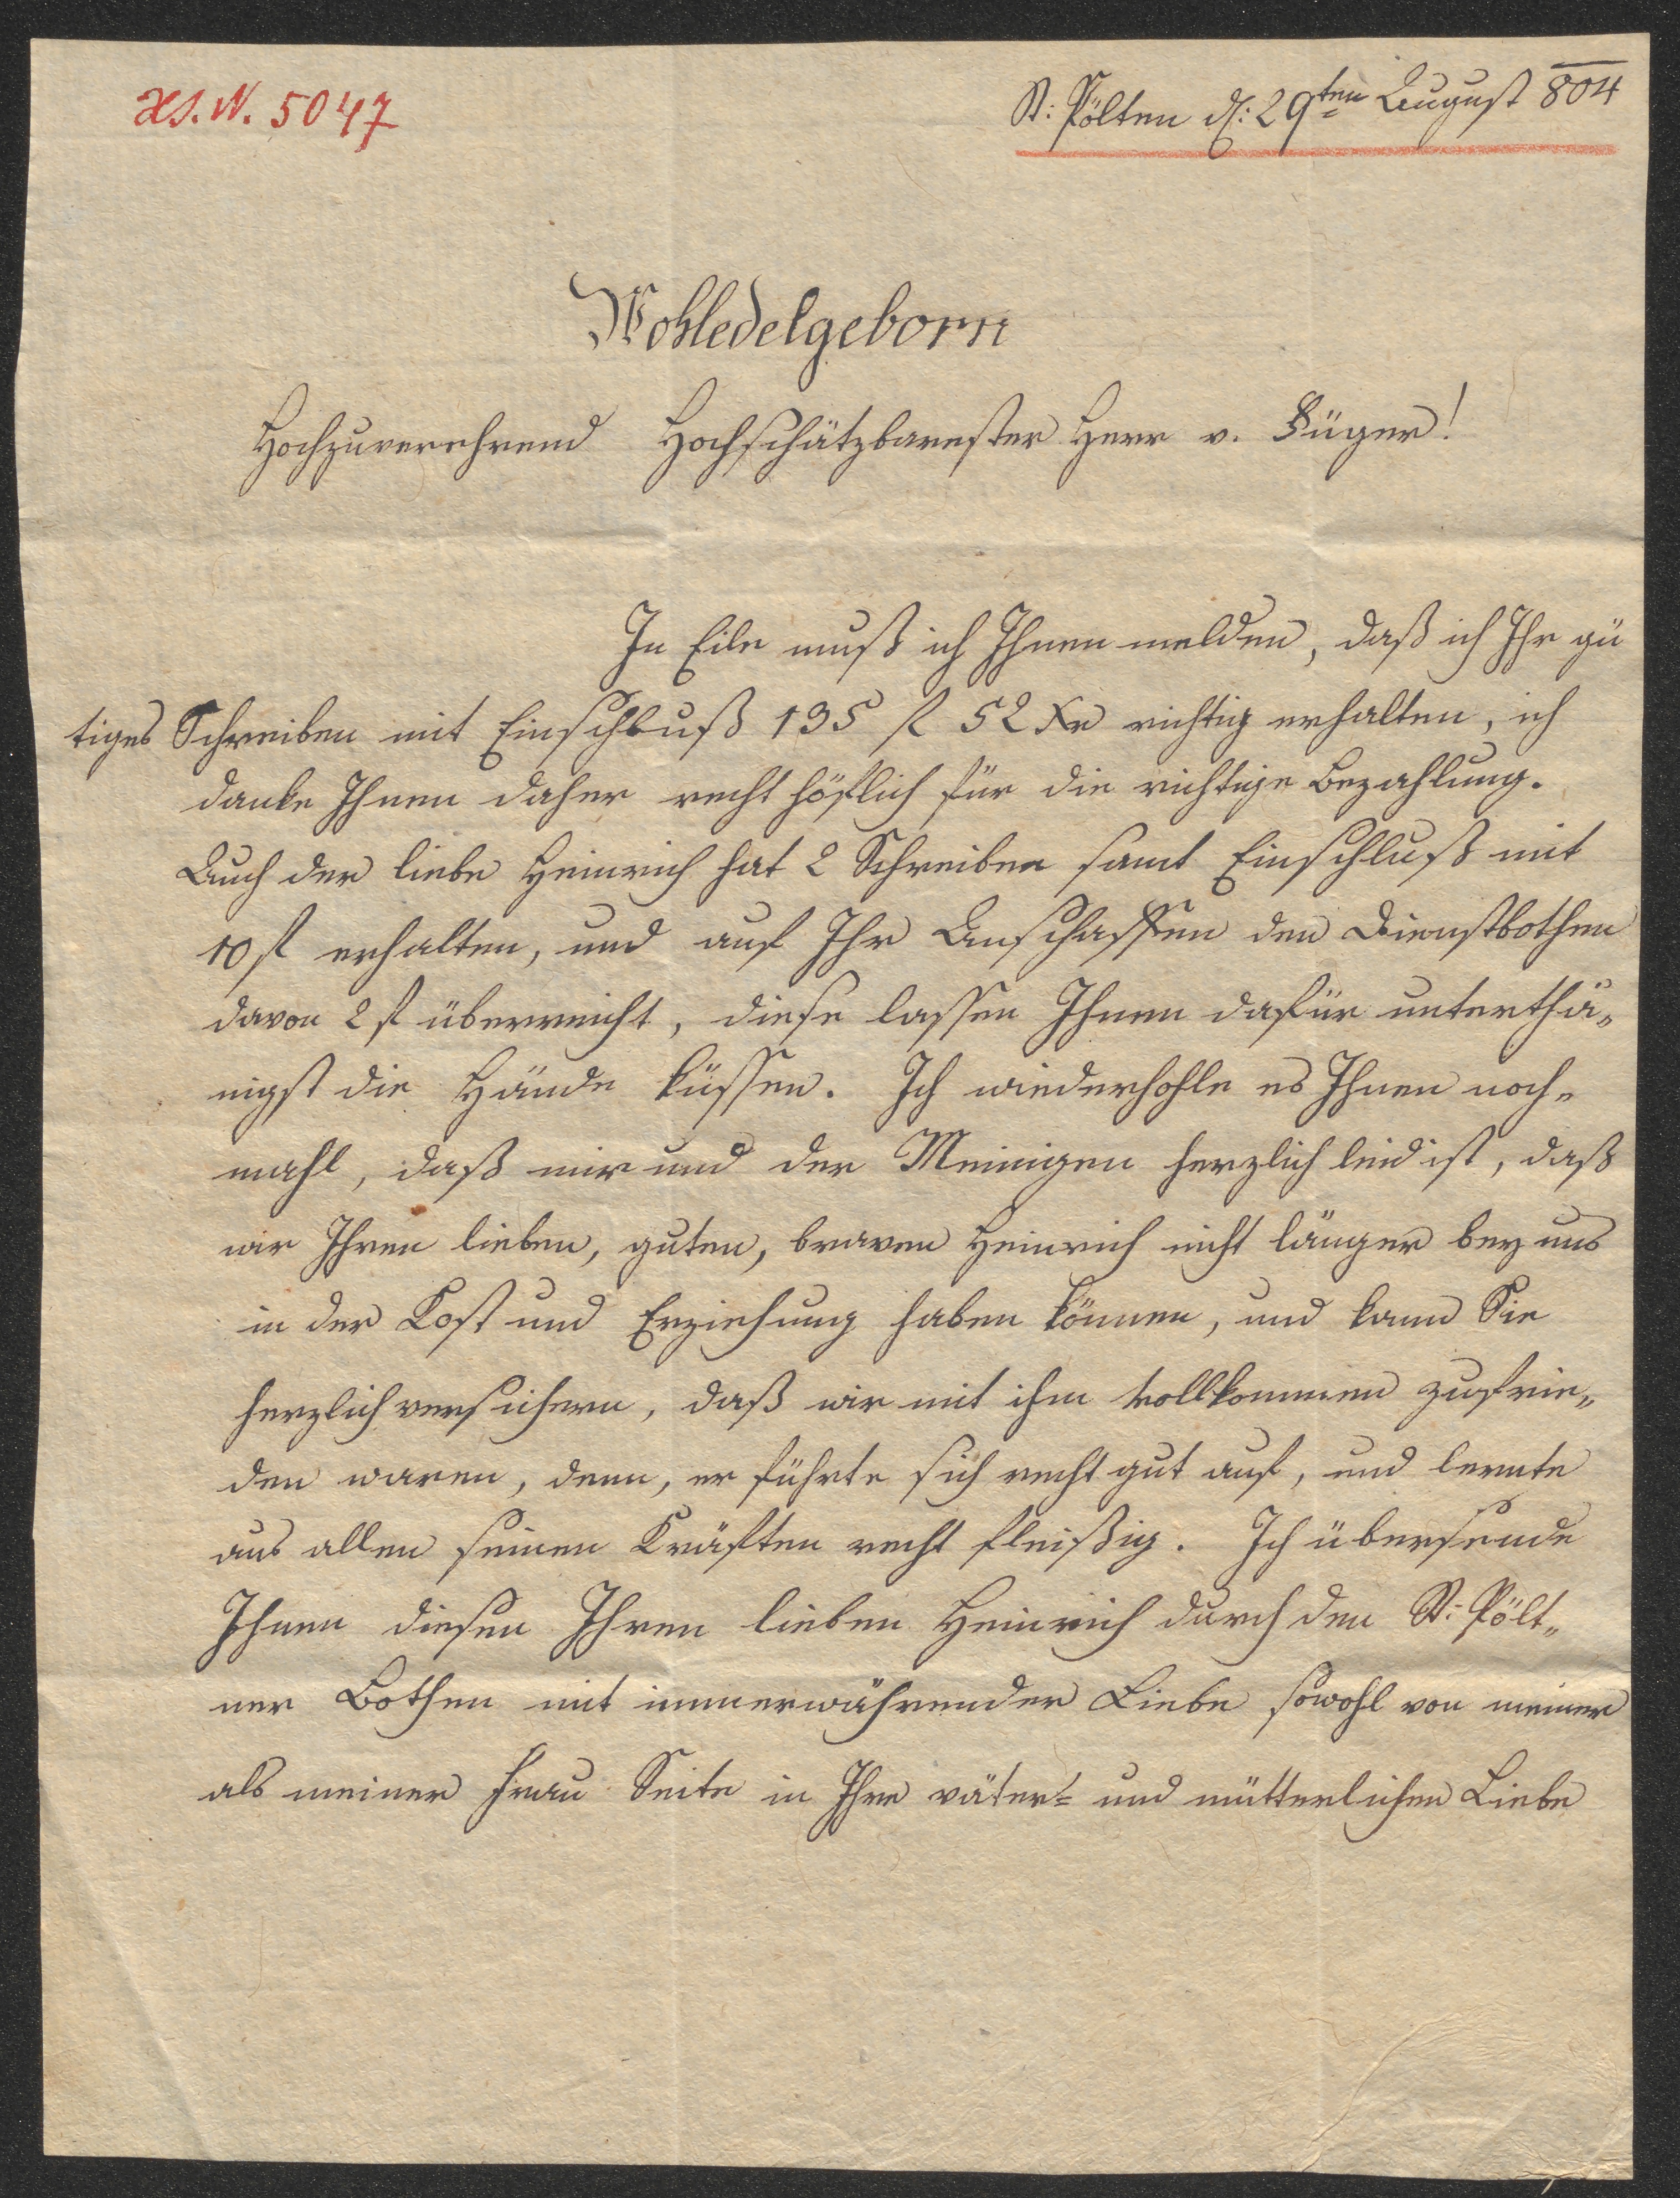 HS. N. 5047
St: Pölten d: 29ten August 804
Wohledelgeborn
Hochzuverehrend Hochschätzbarester Herr v. Füger!
In Eile muß ich Ihnen melden, daß ich Ihr gü
tiges Schreiben mit Einschluß 135 fl 52 Xr richtig erhalten, ich
danke Ihnen daher recht höflich für die richtige Bezahlung.
Auch der liebe Heinrich hat 2 Schreiben samt Einschluß mit
10 fl erhalten, und auf Ihr Anschaffen den Dienstbothen
davon 2 fl überreicht, diese lassen Ihnen dafür unterthä„
nigst die Hände küssen. Ich wiederhohle es Ihnen noch„
mahl, daß mir und der Meinigen herzlich leid ist, daß
wir Ihren lieben, guten, braven Heinrich nicht länger bey uns
in der Kost und Erziehung haben können, und kann Sie
herzlich versichern, daß wir mit ihm vollkommen zufrie„
den waren, denn, er führte sich recht gut auf, und lernte
aus allen seinen Kräften recht fleißig. Ich übersende
Ihnen diesen Ihren lieben Heinrich durch den St: Pölt„
ner Bothen mit immerwährender Liebe sowohl von meiner
als meiner Frau Seite in Ihre väter= und mütterlichen Liebe